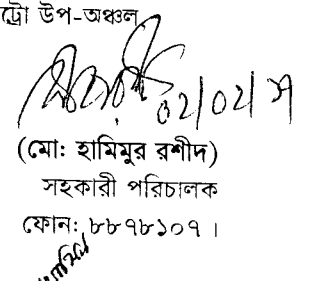 ট্রো উপ-অঞ্চল
০২/০২/
(মো: হামিমুর রশীদ)
সহকারী পরিচালক
ফোন: ৮৮৭৮১০৭ ।